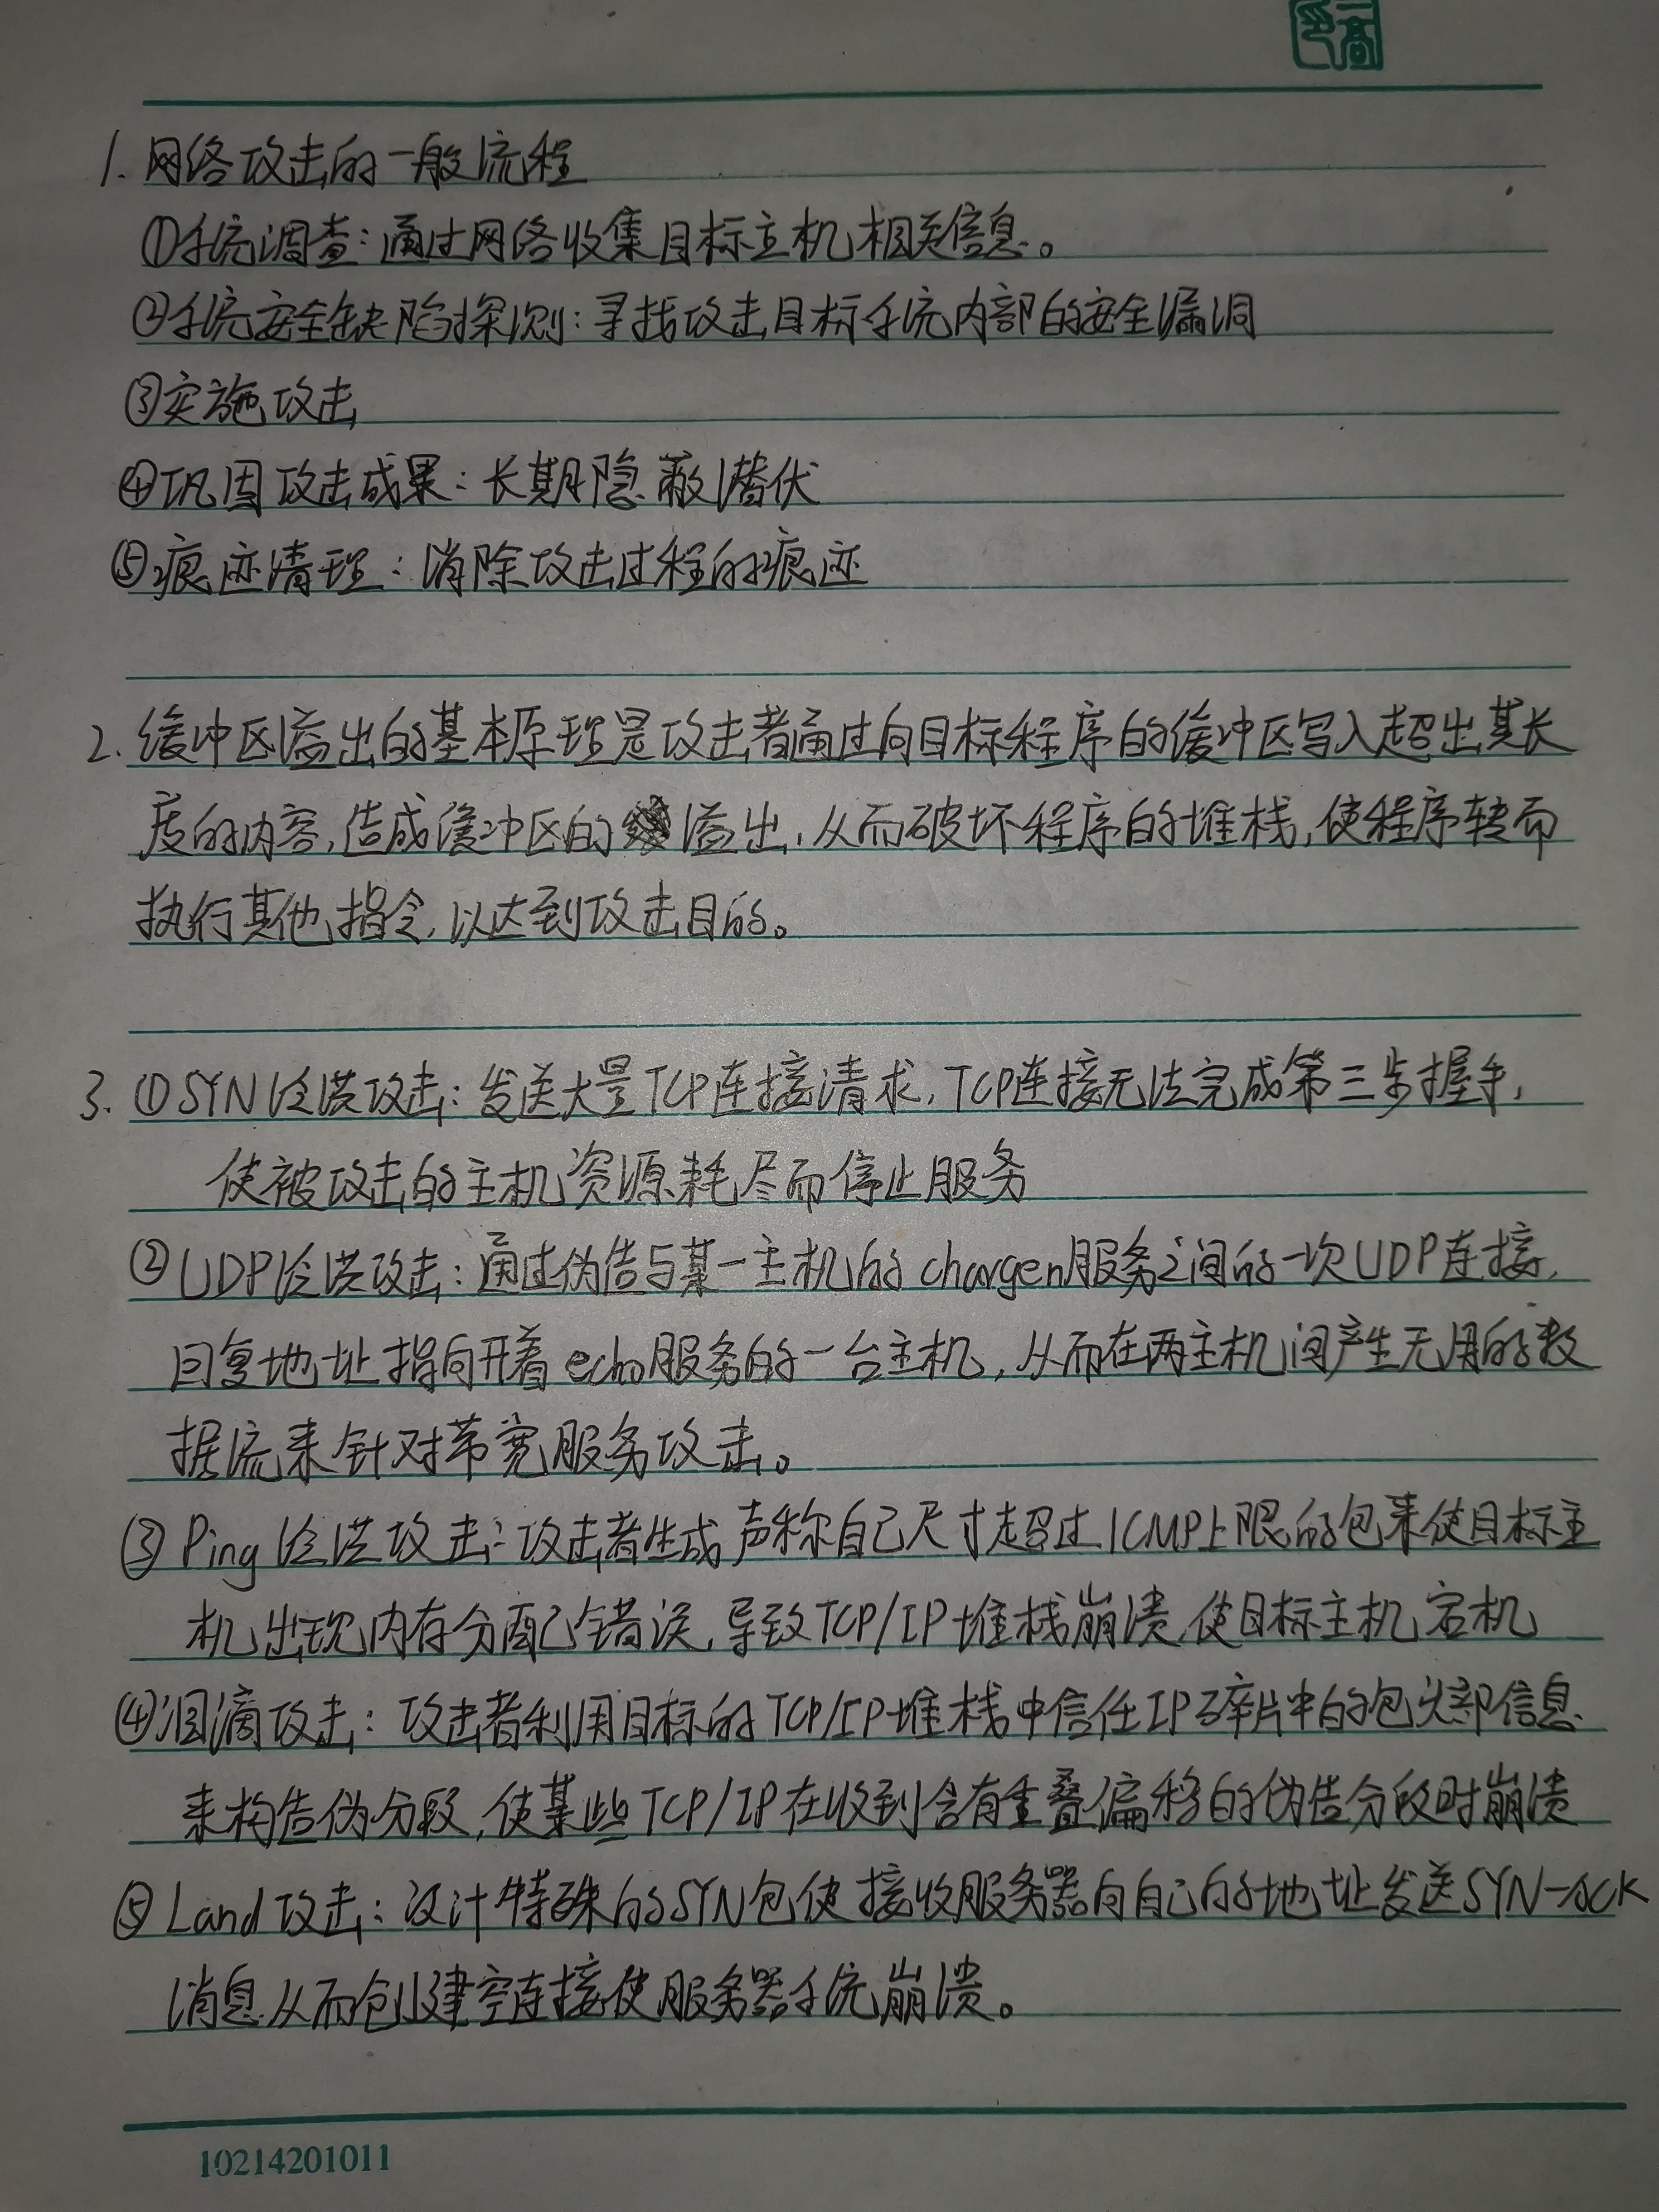 1. 网络攻击的一般流程
①系统调查：通过网络收集目标主机相关信息。
②系统安全缺陷探测：寻找攻击目标系统内部的安全漏洞
③实施攻击
④巩固攻击成果：长期隐蔽潜伏
⑤痕迹清理：消除攻击过程的痕迹
2. 缓冲区溢出的基本原理是攻击者通过向目标程序的缓冲区写入超出其长
度的内容，造成缓冲区的溢出，从而破坏程序的堆栈，使程序转而
执行其他指令，以达到攻击目的。
3. ①SYN洪攻击：发送大量TCP连接请求，TCP连接无法完成第三步握手，
使被攻击的主机资源耗尽而停止服务
②UDP洪攻击：通过伪造与某一主机的chargen服务之间的一次UDP连接，
回复地址指向开着echo服务的一台主机，从而在两主机间产生无用的数
据流来针对带宽服务攻击。
③Ping洪攻击：攻击者生成声称自己尺寸超过ICMP上限的包来使目标主
机出现内存分配错误，导致TCP/IP堆栈崩溃，使目标主机宕机
④泪滴攻击：攻击者利用目标的TCP/IP堆栈中信任IP碎片中的包头部信息
来构造伪分段，使某些TCP/IP在收到含有重叠偏移的伪造分段时崩溃
⑤Land攻击：设计特殊的SYN包使接收服务器向自己的地址发送SYN-ACK
消息，从而创建空连接使服务器系统崩溃。
10214201011